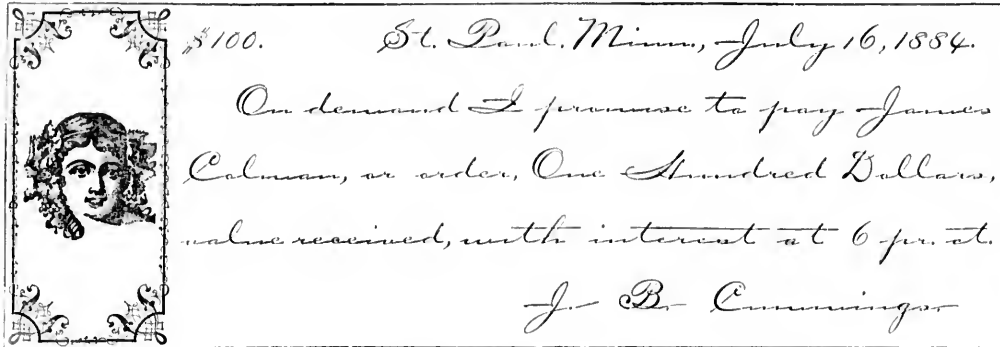 $100. St. Paul, Minn., July 16, 1884.
On demand I promise to pay James
Colman, or order, One Hundred Dollars,
value received, with interest at 6 pr. ct.
J. B. Cummings